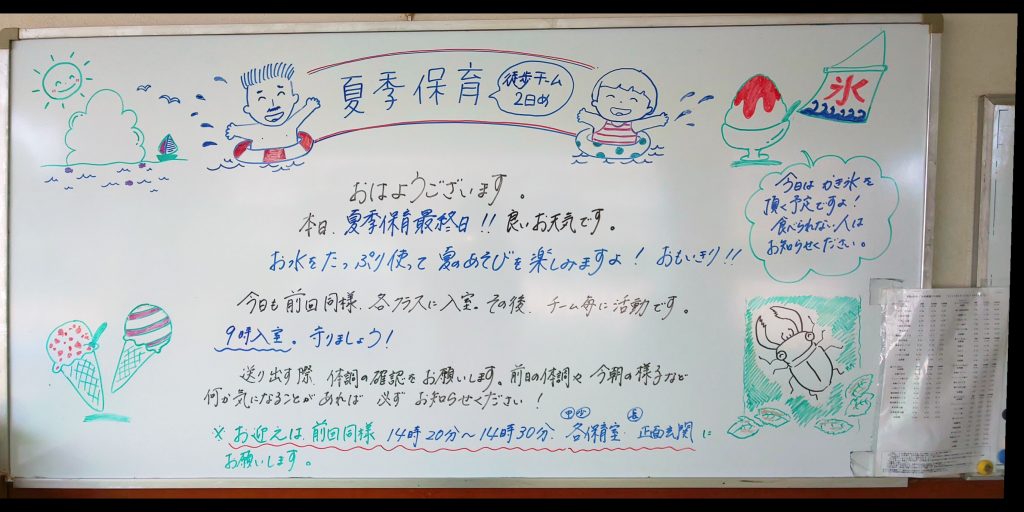 夏季保育
徒歩チーム
2日め
氷
おはようございます。
本日、夏季保育最終日!! 良いお天気です。
お水をたっぷり使って 夏のあそびを楽しみますよ! おもいきり!!
今日は かき氷を
頂く予定ですよ!
食べられない人は
お知らせください。
今日も前回同様、各クラスに入室。その後、チーム毎に活動です。
9時入室。守りましょう!
送り出す際、体調の確認をお願いします。前日の体調や今朝の様子など
何か気になることがあれば 必ず お知らせください!
※お迎えは、前回同様 14時20分〜14時30分、各保育室、正面玄関に
お願いします。